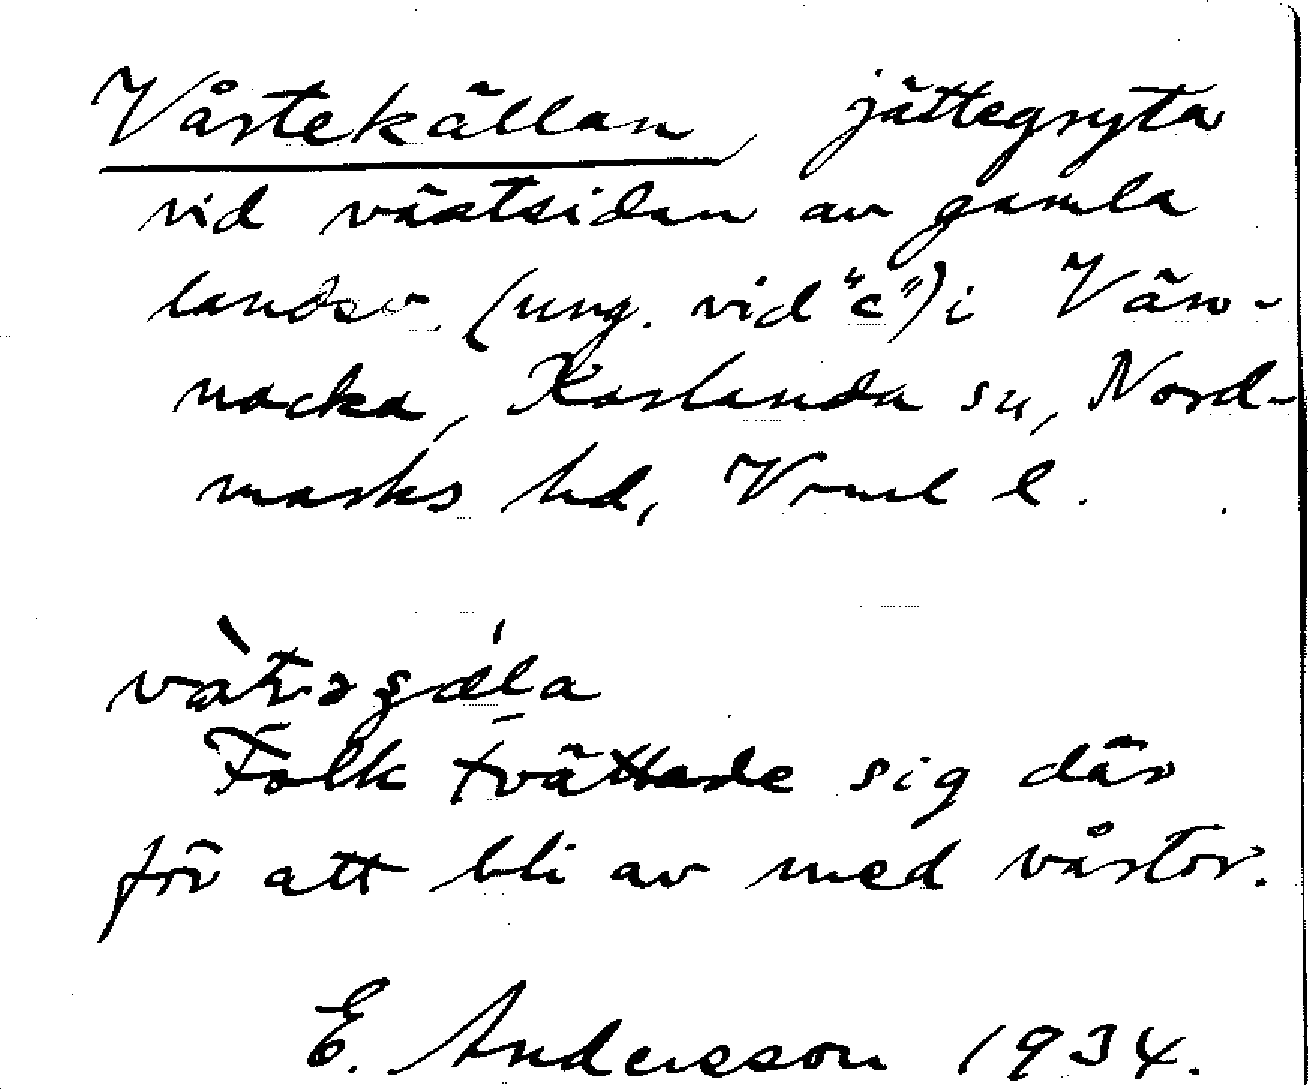 Vårtekällan, jättegryta
vid västsidan av gamla
landsv. (ung. vid "c") i Vän-
nacka, Karlanda sn, Nord-
marks hd, Vrml l.
Folk tvättade sig där
för att bli av med vårtor.
E. Andersson 1934.